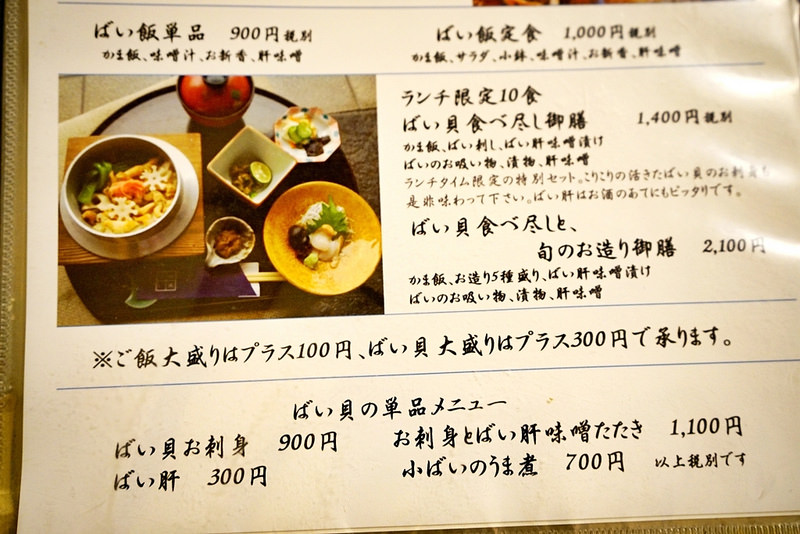 ばい飯単品 900円税別
かま飯、味噌汁、お新香、肝味噌
ばい飯定食 1,000円税別
かま飯、サラダ、小鉢、味噌汁、お新香、肝味噌
ランチ限定10食
ばい貝食べ尽し御膳 1,400円税別
かま飯、ばい刺し、ばい肝味噌漬け
ばいのお吸い物、漬物、肝味噌
ランチタイム限定の特別セット。こりこりの活きたばい貝のお刺身も
是非味わって下さい。ばい肝はお酒のあてにもピッタリです。
ばい貝食べ尽しと、
旬のお造り御膳 2,100円
かま飯、お造り5種盛り、ばい肝味噌漬け
ばいのお吸い物、漬物、肝味噌
※ご飯大盛りはプラス100円、ばい貝大盛りはプラス300円で承ります。
ばい貝の単品メニュー
ばい貝お刺身 900円
お刺身とばい肝味噌たたき 1,100円
ばい肝 300円
小ばいのうま煮 700円 以上税別です